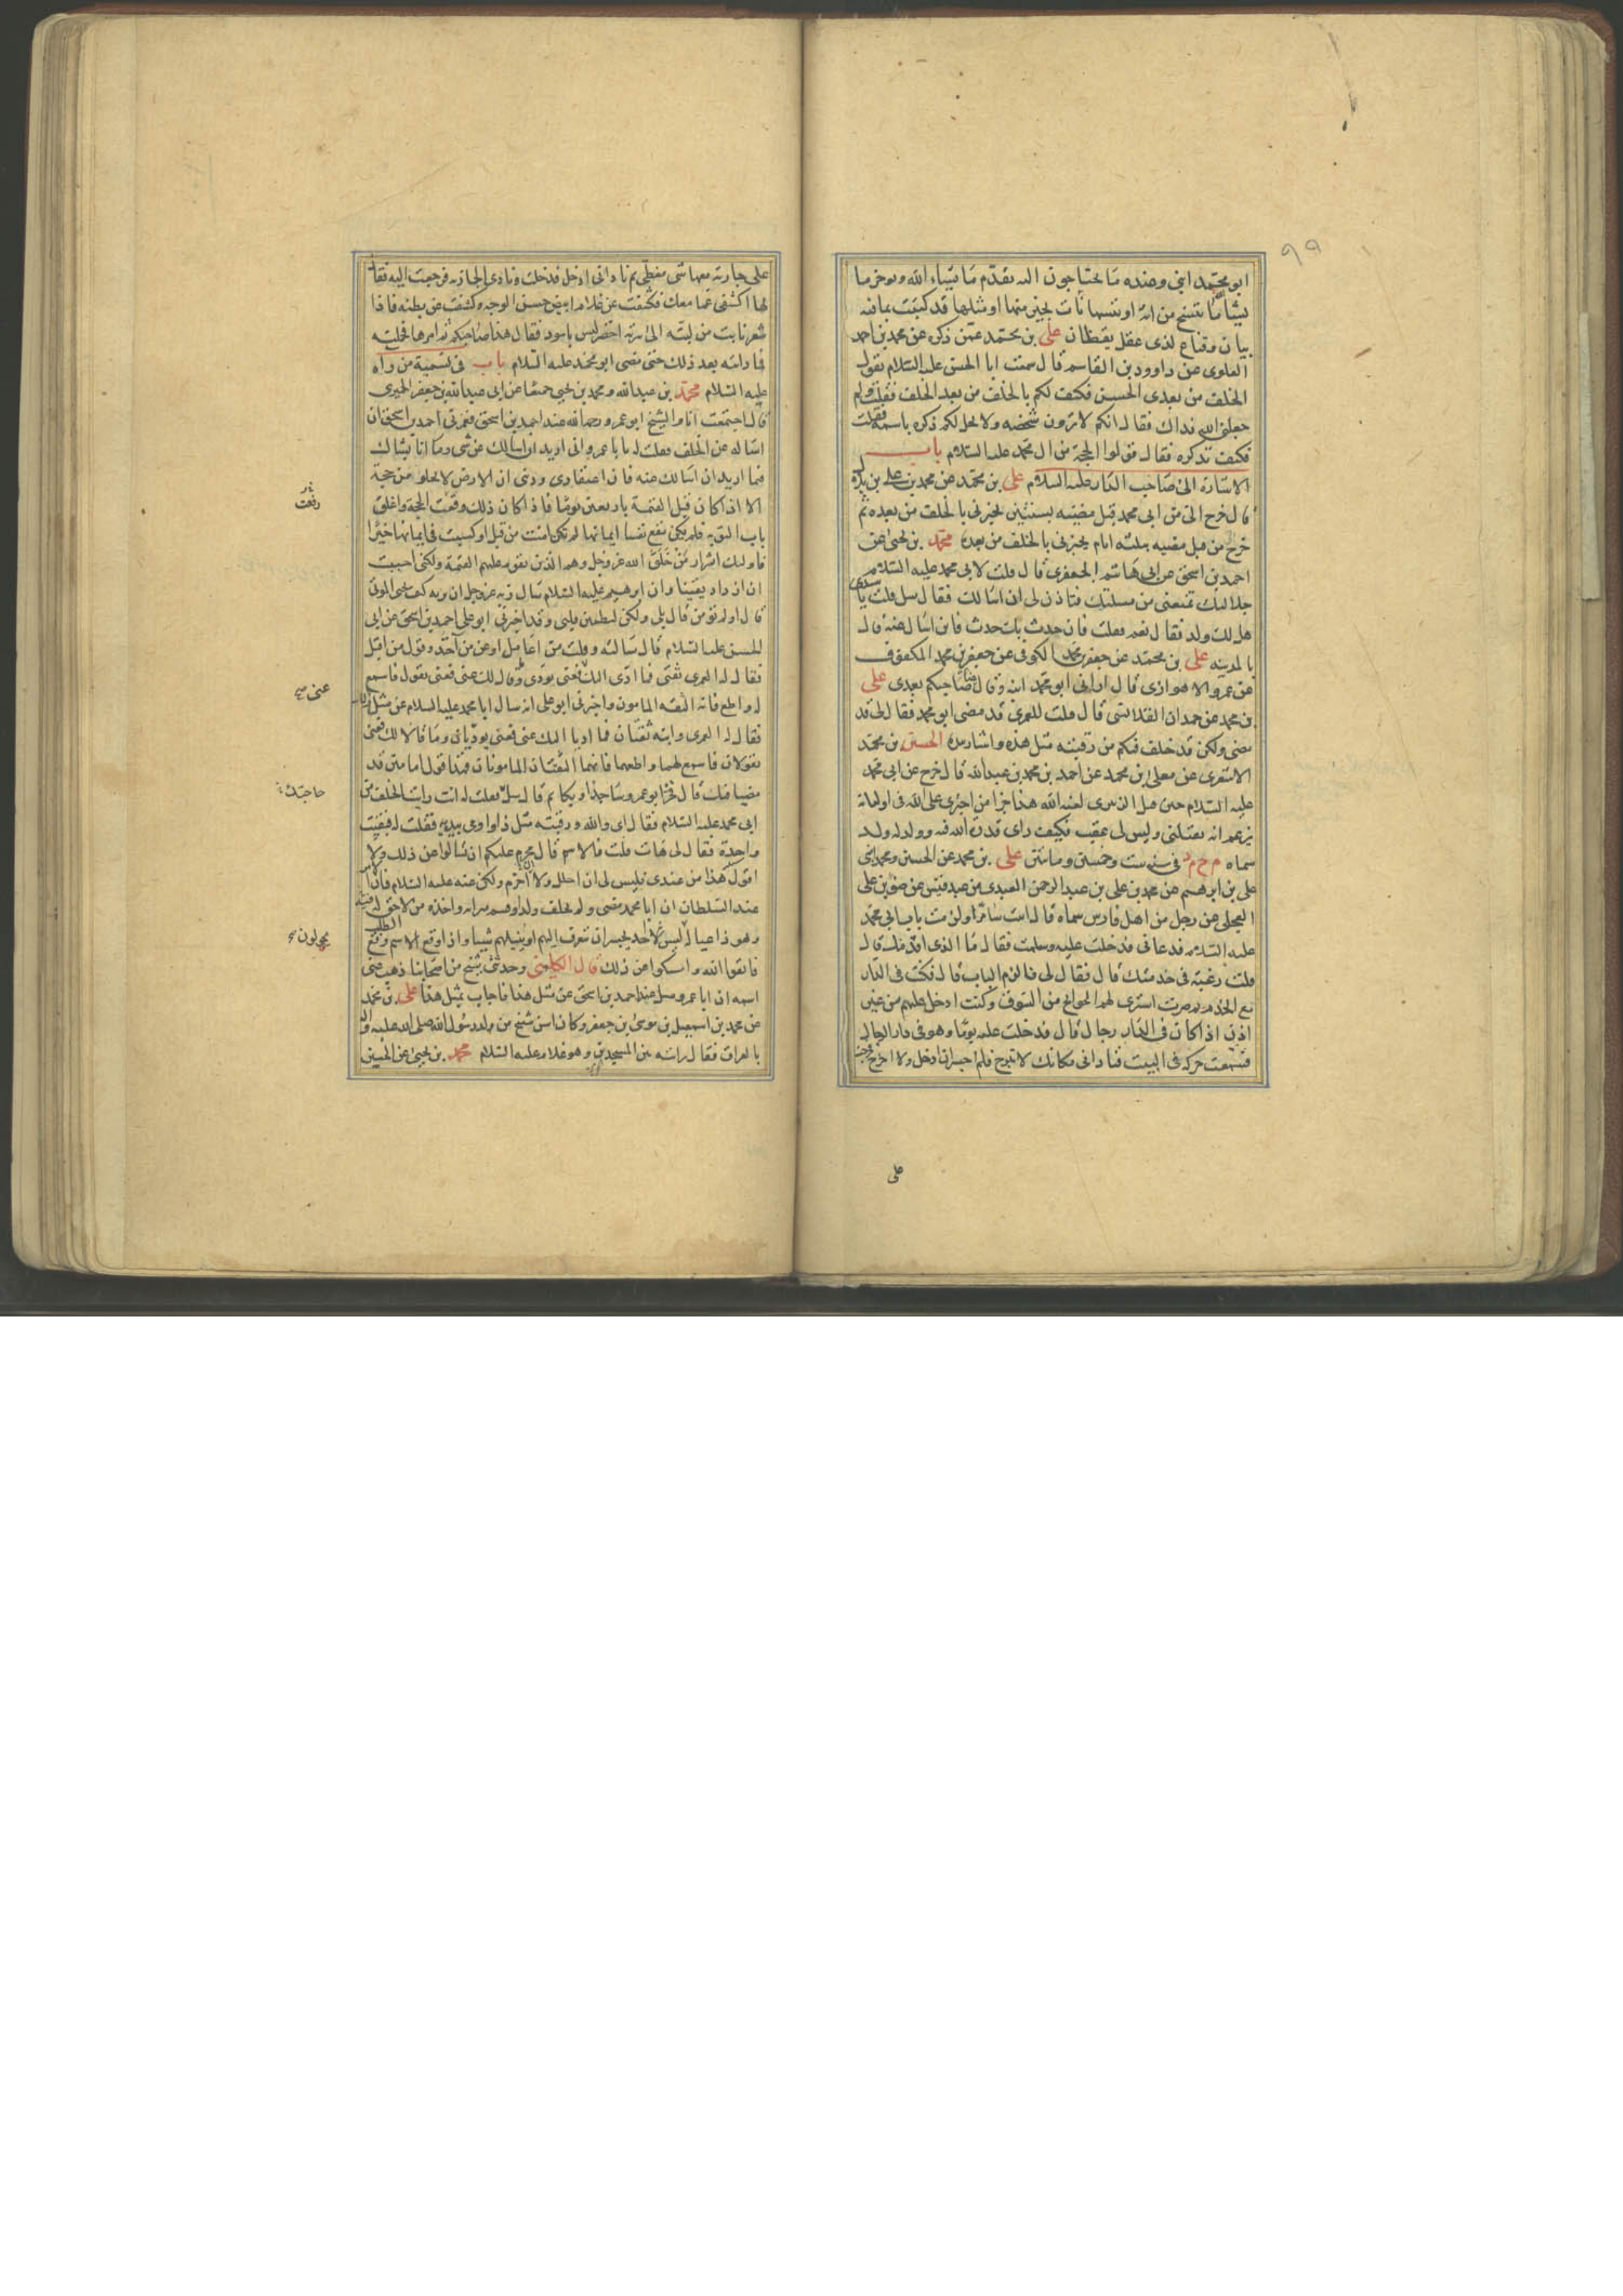 ٩٩
ابو محمد ابنى وعنده ما يحتاجون اليه يقدم ما يشاء الله ويوخر ما
يشا ما ننسخ من اية او ننسها نات بخير منها او مثلها قد كتبت بما فيه
بيان وقناع لذى عقل يقظان على بن محمد عمن ذكره عن محمد بن احمد
العلوى عن داوود بن القاسم قال سمعت ابا الحسن عليه السلام يقول
الخلف من بعدى الحسن فكيف لكم بالخلف من بعد الخلف فقلت ولم
جعلنى الله فداك فقال انكم لا ترون شخصه ولا يحل لكم ذكره باسمه فقلت
فكيف نذكره فقال قولوا الحجة من ال محمد عليه السلام باب
الاشارة الى صاحب الدار عليه السلام على بن محمد عن محمد بن على بن بلال
قال خرج الى من ابى محمد قبل مضيه بسنتين يخبرنى بالخلف من بعده ثم
خرج من قبل مضيه بثلثه ايام يخبرنى بالخلف من بعده محمد بن يحيى عن
احمد بن اسحق عن ابى هاشم الجعفرى قال قلت لابى محمد عليه السلام
جلالتك تمنعنى من مسئلتك فتاذن لى ان اسالك فقال سل قلت يا سيدى
هل لك ولد فقال نعم فقلت فان حدث بك حدث فاين اسال عنه قال
بالمدينه على بن محمد عن جعفر بن محمد الكوفى عن جعفر بن محمد المكفوف
عن عمرو الاهوازى قال ارانى ابو محمد ابنه وقال هذا صاحبكم بعدى على
بن محمد عن حمدان القلانسى قال قلت للعمرى قد مضى ابو محمد فقال لى قد
مضى ولكن قد خلف فيكم من رقبته مثل هذه واشار بيده الحسين بن محمد
الاشعرى عن معلى بن محمد عن احمد بن محمد بن عبدالله قال خرج عن ابى محمد
عليه السلام حين قتل الزبيرى لعنه الله هذا جزا من اجترى على الله فى اوليائه
يزعم انه يقتلنى وليس لى عقب فكيف راى قدرة الله فيه وولد له ولد
سماه م ح م د فى سنه ست وخمسين ومائتين على بن محمد عن الحسين ومحمد ابنى
على بن ابرهيم عن محمد بن على بن عبد الرحمن العبدى من عبد قيس عن ضوء بن على
العجلى عن رجل من اهل فارس سماه قال اتيت سامرا ولزمت باب ابى محمد
عليه السلام فدعانى فدخلت عليه وسلمت فقال ما الذى اقدمك قال
قلت رغبة فى خدمتك قال فقال لى فالزم الباب قال فكنت فى الدار
مع الخدم ثم صرت اشترى لهم الحوائج من السوق وكنت ادخل عليهم من غير
اذن اذا كان فى الدار رجال قال فدخلت عليه يوما وهو فى دار الرجال
فسمعت حركه فى البيت فنادانى مكانك لا تبرح فلم اجسر ان ادخل ولا اخرج فخرجت
على
على جارية معها شى مغطى ثم نادانى ادخل فدخلت ونادى الجاريه فرجعت اليه فقال
لها اكشفى عما معك فكشفت عن غلام ابيض حسن الوجه وكشفت عن بطنه فاذا
شعر نابت من لبته الى سرته اخضر ليس باسود فقال هذا صاحبكم ثم امرها فحملته
فما رايته بعد ذلك حتى مضى ابو محمد عليه السلام باب فى تسمية من راه
عليه السلام محمد بن عبدالله ومحمد بن يحيى جميعا عن ابى عبدالله بن جعفر الحميرى
قال اجتمعت انا والشيخ ابو عمرو رحمه الله عند احمد بن اسحق فغمزنى احمد بن اسحق ان
اساله عن الخلف فقلت له يا با عمرو انى اريد ان اسالك عن شى وما انا بشاك
فيما اريد ان اسالك عنه فان اعتقادى ودينى ان الارض لا تخلو من حجة
الا اذا كان قبل القيمة باربعين يوما فاذا كان ذلك وقعت الحجة واغلق
باب التوبه فلم يكن ينفع نفسا ايمانها لم تكن امنت من قبل او كسبت فى ايمانها خيرا
فاولئك اشرار من خلق الله عز وجل وهم الذين تقوم عليهم القيمة ولكنى احببت
ان ازداد يقينا وان ابرهيم عليه السلام سال ربه عز وجل ان يريه كيف يحيى الموتى
قال اولم تومن قال بلى ولكن ليطمئن قلبى وقد اخبرنى ابو على احمد بن اسحق عن ابى
الحسن عليه السلام قال سالته وقلت من اعامل او عن من آخذ وقول من اقبل
فقال له العمرى ثقتى فما ادى اليك عنى فعنى يودى وما قال لك عنى فعنى يقول فاسمع
له واطع فانه الثقه المامون واخبرنى ابو على انه سال ابا محمد عليه السلام عن مثل ذلك
فقال له العمرى وابنه ثقتان فما اديا اليك عنى فعنى يوديان وما قالا لك فعنى
يقولان فاسمع لهما واطعهما فانهما الثقتان المامونان فهذا قول امامين قد
مضيا فيك قال فخر ابو عمرو ساجدا وبكا ثم قال سل فقلت له انت رايت الخلف من
ابى محمد عليه السلام فقال اى والله ورقبته مثل ذا واومى بيديه فقلت له فبقيت
واحدة فقال لى هات قلت فالاسم قال محرم عليكم ان تسالوا عن ذلك ولا
اقول هذا من عندى فليس لى ان احلل ولا احرم ولكن عنه عليه السلام فان الامر
عند السلطان ان ابا محمد مضى ولم يخلف ولدا وقسم ميراثه واخذه من لا حق له فيه
وهو ذا عياله ليس لاحد يجسر ان يتعرف اليهم او ينيلهم شيئا واذا وقع الاسم وقع الطلب
فاتقوا الله وامسكوا عن ذلك قال الكلينى وحدثنى شيخ من اصحابنا ذهب عنى
اسمه ان ابا عمرو سئل عند احمد بن اسحق عن مثل هذا فاجاب بمثل هذا على بن محمد
عن محمد بن اسمعيل بن موسى بن جعفر وكان اسن شيخ من ولد رسول الله صلى الله عليه واله
بالعراق فقال رايته بين المسجدين وهو غلام عليه السلام محمد بن يحيى عن الحسين
رفعت
عنى
حاجتك
يجولون